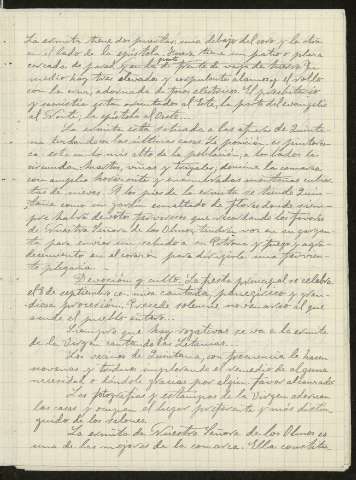 La ermita tiene dos puertas: una debajo del coro y la otra
en el lado de la epístola. Fuera tiene un patio o plaza
cercada de pared y en la parte de
medio hay tres elevados y corpulentos álamos y el rollo
con la cruz, adornada de focos eléctricos. El presbiterio
y camarín están orientados al Este, la parte del evangelio
al Norte, la epístola al Oeste...
La ermita está situada a las afueras de Quinta-
na tocando con las últimas casas. La posición es pintores-
ca: está en lo más alto de la población, a los lados la
circundan huertos, viñas y torrejas; domina la comarca
con amplio horizonte y encumbradas montañas cubier-
tas de nieves. A los pies de la ermita se tiende Quin-
tana como un jardín esmaltado de flores donde siem-
pre habrá devotos fervorosos que recordando los favores
de Nuestra Señora de los Olmos, tendrán voz en su gargan-
ta para enviar un saludo a su Patrona y fuego y agra-
decimiento en el corazón para dirigirle una fervien-
te plegaria.
Devoción y culto. La fiesta principal se celebra
el 8 de septiembre con misa cantada, panegírico y gran-
diosa procesión. Precede solemne novenario al que
acude el pueblo entero...
Siempre que hay rogativas se va a la ermita
de la Virgen cantando las Letanías.
Los vecinos de Quintana, con frecuencia le hacen
novenas y triduos implorando el remedio de alguna
necesidad o dándole gracias por algún favor alcanzado.
Las fotografías y estampas de la Virgen adornan
las casas y ocupan el lugar preferente y más distin-
guido de los salones.
La ermita de Nuestra Señora de los Olmos es
una de las mejores de la comarca. Ella constitu-